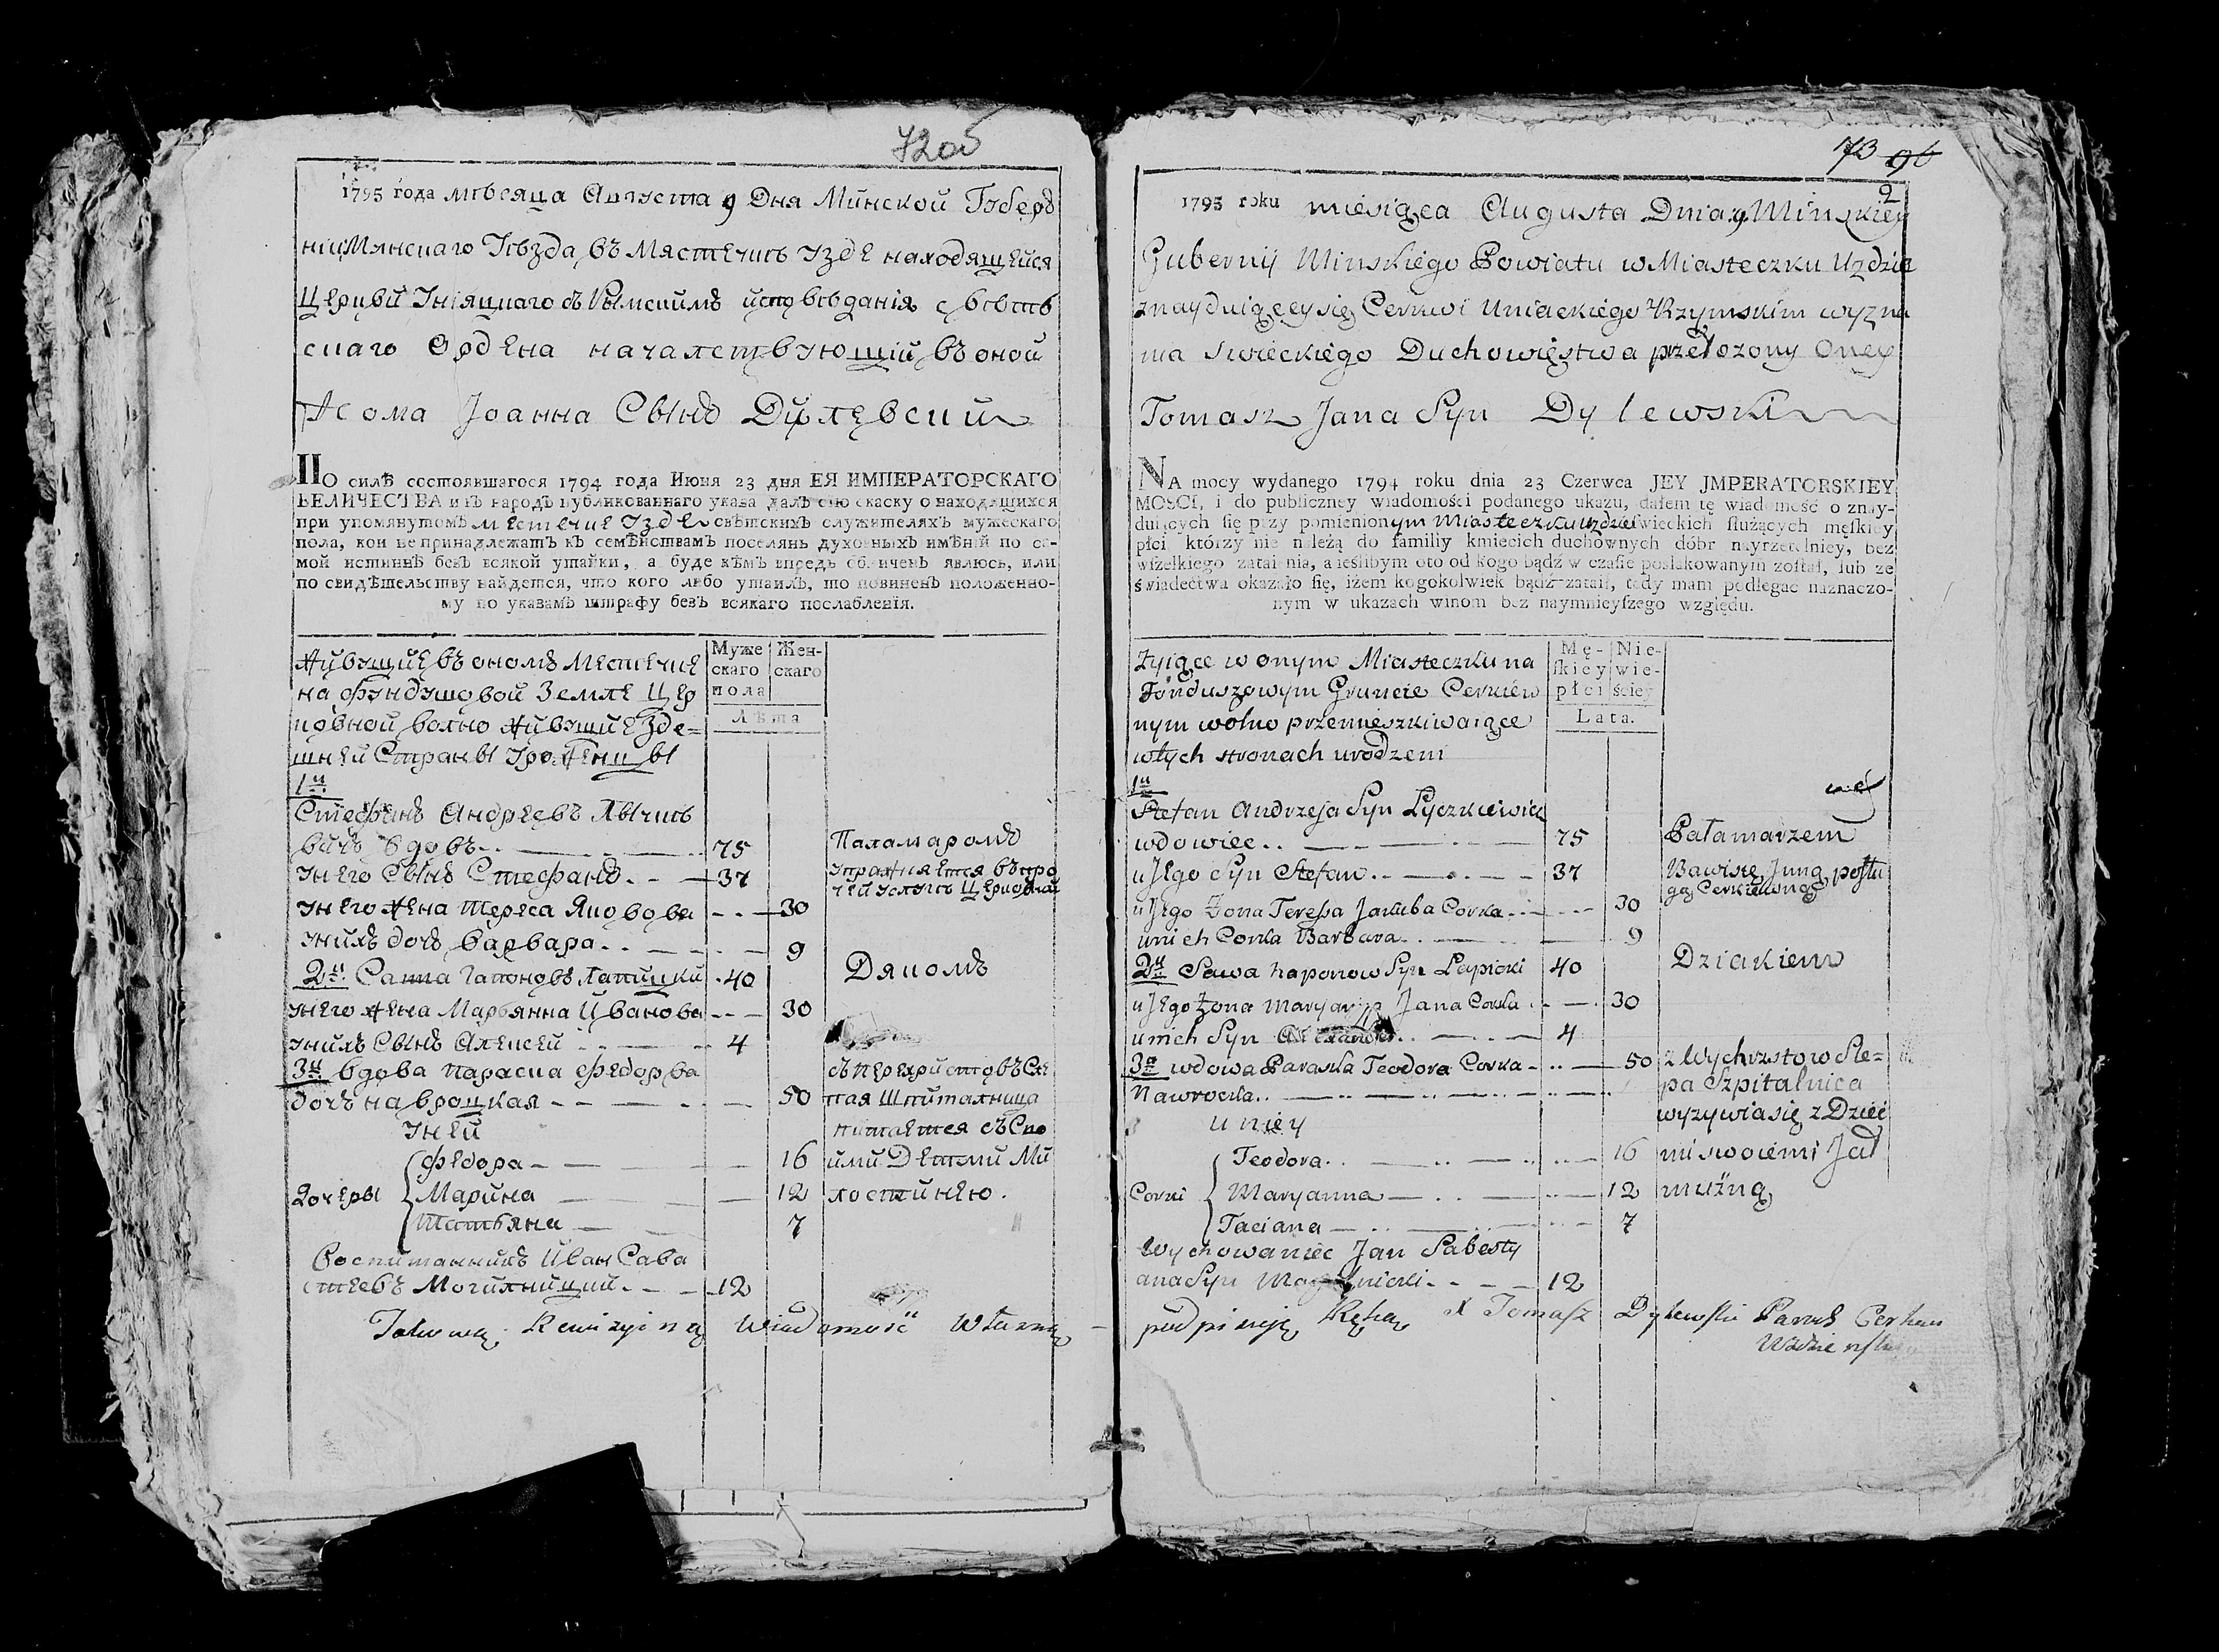 72об
1795 года мѣсяца Августа 9 Дня Минской Губер
ніи Минскаго Уѣзда въ Мястечкѣ Узде находящейся
Церкви Уніяцкаго съ Рымскимъ исповѣданія свѣтѣ
скаго Ордена началствующій въ оной
Ѳома Іоанна Сынъ Дылевский
По силѣ состоявшагося 1794 года Июня 23 дня ЕЯ ИМПЕРАТОРСКАГО
ВЕЛИЧЕСТВА и въ народъ публикованнаго указа далъ сию скаску о находящихся
при упомянутомъ местечке Узде свѣтскихъ служителяхъ мужескаго
пола, кои не принадлежатъ къ семѣйствамъ поселянъ духовныхъ имѣній по са-
мой истиннѣ безъ всякой утайки, а буде кѣмъ впредь обличенъ явлюсь, или
по свидѣтельству найдется, что кого либо утаилъ, то повиненъ положенно-
му по указамъ штрафу безъ всякаго послабленія.
Муже
скаго
пола
Жен-
скаго
Лѣта
Живущие въ ономъ Местечке
на фундушовой Земле Цер
ковной волно живущие Зде=
шней Страны Уроженцы
1й
Стефанъ Андреевъ Лычкѣ
вичъ вдовъ 75 Паламаромъ
У него Сынъ Стефанъ 37 Упражняется въ про
чей услугѣ Церковной
У него жена Тереса Яковова 30
У нихъ дочъ Варвара 9
2й Савва Гапоновъ Лапицки 40 Дякомъ
У него жена Марьянна Иванова 30
У нихъ Сынъ Алексей 4
3й вдова Параска Федорова съ перехристовъ Сле
дочъ Навроцкая 50 пая Шпиталница
У ней питается съ Сво
Федора 16 ими Детми Ми
Дочеры Марина 12 лостинею.
Татьяна 7
Воспитанникъ Иван Сава
стеевъ Могилницкий 12
Takową Rewizyiną Wiadomość Własną
73 96
2
1795 roku miesiąca Augusta Dnia 9 Minskiey
Gubernij Minskiego Powiatu w Miasteczku Uzdzie
znayduiącey się Cerkwi Uniackiego z Rzymskim wyzna
nia Swieckiego Duchowięstwa przełozony Oney
Tomasz Jana Syn Dylewski
NA mocy wydanego 1794 roku dnia 23 Czerwca JEY JMPERATORSKIEY
MOSCI, i do publiczney wiadomości podanego ukazu, dałem tę wiadomość o znay-
duiących się przy pomienionym Miasteczku Uzdzie świeckich służących męskiey
płci którzy nie należą do familiy kmiecich duchownych dóbr nayrzetelniey, bez
wszelkiego zataienia, a ieślibym oto od kogo bądź w czasie poszlakowanym został, lub ze
świadectwa okazało się, iżem kogokolwiek bądź zataił, tedy mam podlegać naznaczo-
nym w ukazach winom bez naymnieyszego względu.
Mę-
skiey
płci
Nie-
wie-
ściey
Lata.
Żyiące w onym Miasteczku na
Fonduszowym Gruncie Cerkiew
nym wolno przemieszkiwaiące
w tych stronach urodzeni
1й
Stefan Andrzeja Syn Łyczkiewicz
wdowiec 75 Pałamarzem
u Jego Syn Stefan 37 Bawi się Jnną posłu
gą Cerkiewną
u Jego Żona Teressa Jakuba Corka 30
u nich Corka Barbara 9
2й Sawa Haponow Syn Łapicki 40 Dziakiem
u Jego Żona Maryanna Jana Corka 30
u nich Syn 4
3я wdowa Paraska Teodora Corka 50 z Wychrzstow Sle=
Nawrocka pa Szpitalnica
u niey wyzywia się z Dzieć
Teodora 16 mi swoiemi Jał
Corki Maryanna 12 mużną
Taciana 7
Wychowaniec Jan Sabesty
ana Syn 12
podpisuię Ręką X Tomasz Dylewski Paroch Cerkwi